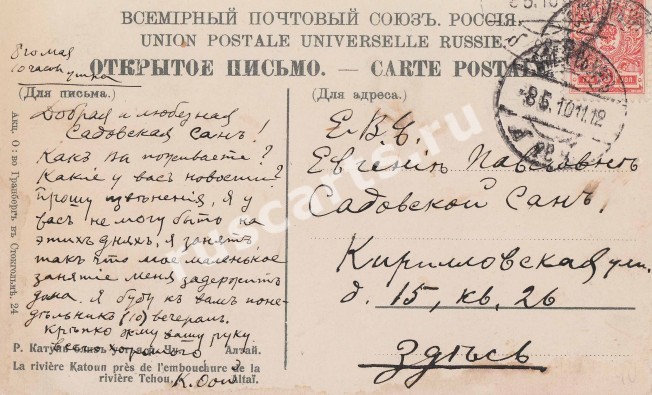 ВСЕМІРНЫЙ ПОЧТОВЫЙ СОЮЗЪ. РОССІЯ.
UNION POSTALE UNIVERSELLE RUSSIE.
ОТКРЫТОЕ ПИСЬМО. — CARTE POSTALE
8го мая
10 часовъ утра
(Для письма.)
Добрая и любезная
Садовская Санъ!
Какъ Вы поживаете?
Какіе у васъ новости?
Прошу извѣненія, я у
васъ не могу быть на
этихъ дняхъ, я занятъ
такъ что мое маленькое
занятіе меня задержитъ
дома. Я буду къ вамъ поне-
дѣльникъ (10) вечеромъ.
Крѣпко жму вашу руку
всего хорошаго
Р. Катунь близъ Алтай.
La rivière Katoun près de l'embouchure de la
rivière Tchou, Altaï.
Акц. О-во Гранбергъ въ Стокгольмѣ, 24
(Для адреса.)
Е. В. Ч.
Евгеніи Павловнѣ
Садовской Санъ.
Кирилловская ул.
д. 15, кв. 26
Здѣсь
-8.5.10 11.12
ruscarts.ru